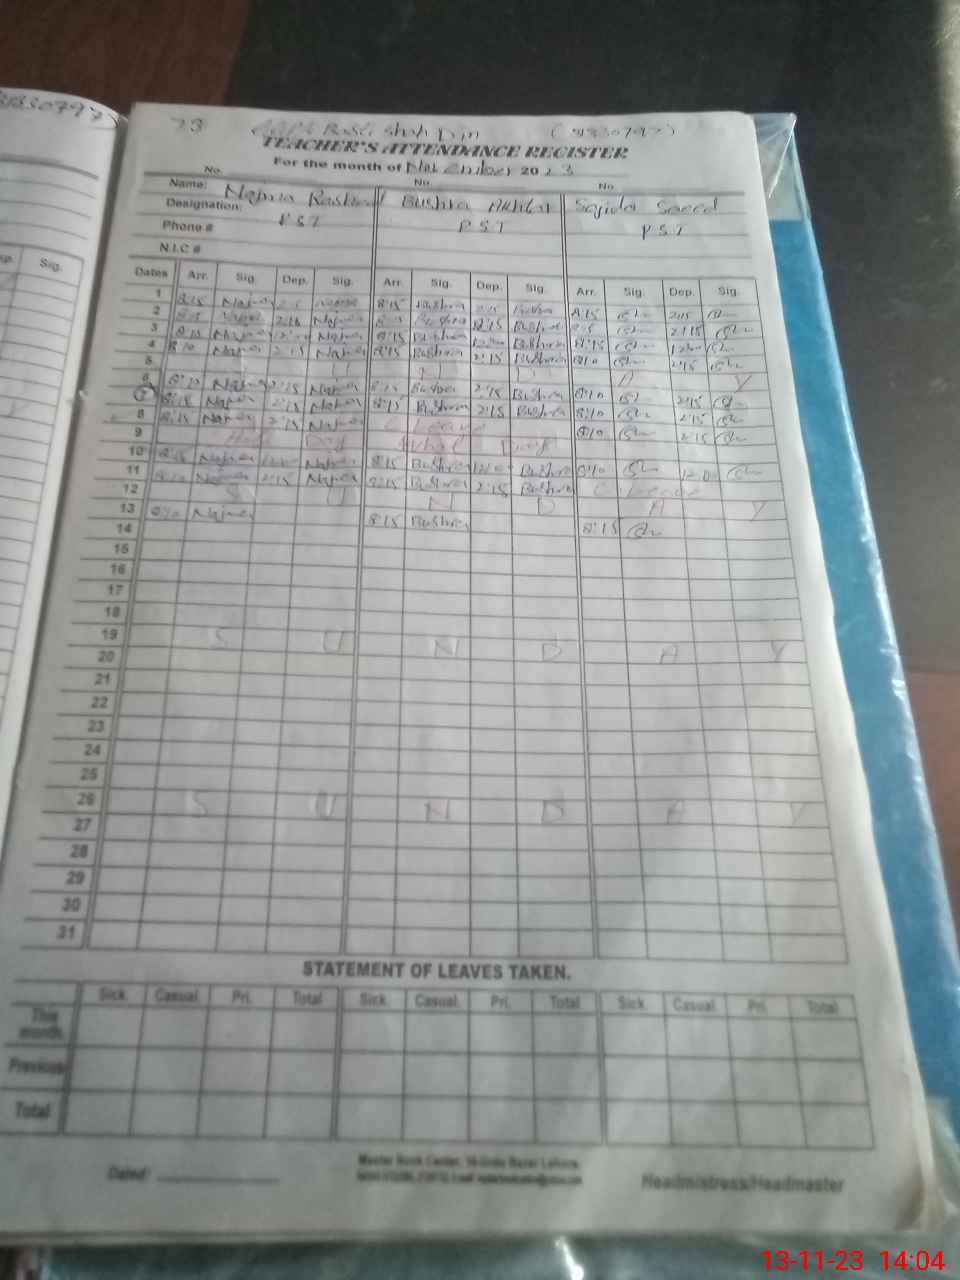 23 Shah Din (31330797)
TEACHER'S ATTENDANCE REGISTER
For the month of November 2023
No. No. No.
Name: Najma Rashid Bushra Akhtar Sajida Saeed
Designation: PST PST PST
Phone #
N.I.C #
Dates Arr. Sig. Dep. Sig. Arr. Sig. Dep. Sig. Arr. Sig. Dep. Sig.
1 8:15 Najma 2:15 Najma 8:15 Bushra 2:15 Bushra 8:15 2:15
2 8:15 Najma 2:15 Najma 8:15 Bushra 2:15 Bushra 8:15 2:15
3 8:15 Najma 12:00 Najma 8:15 Bushra 12:00 Bushra 8:15 12:00
4 8:10 Najma 2:15 Najma 8:15 Bushra 2:15 Bushra 8:10 2:15
5 U N D A Y
6 8:10 Najma 2:15 Najma 8:15 Bushra 2:15 Bushra 8:10 2:15
7 8:15 Najma 2:15 Najma 8:15 Bushra 2:15 Bushra 8:10 2:15
8 8:15 Najma 2:15 Najma C Leave 8:10 2:15
9 Day
10 8:15 Najma 12:00 Najma 8:15 Bushra 12:00 Bushra 8:10 12:00
11 8:10 Najma 2:15 Najma 8:15 Bushra 2:15 Bushra C Leave
12 S U N D A Y
13 8:10 Najma 8:15 Bushra 8:15
14
15
16
17
18
19 S U N D A Y
20
21
22
23
24
25
26 S U N D A Y
27
28
29
30
31
STATEMENT OF LEAVES TAKEN.
Sick. Casual. Pri. Total Sick. Casual. Pri. Total Sick. Casual. Pri. Total
This month.
Previous
Total
Dated:
Master Book Center, Urdu Bazar Lahore.
Headmistress/Headmaster
Sig.
13-11-23 14:04